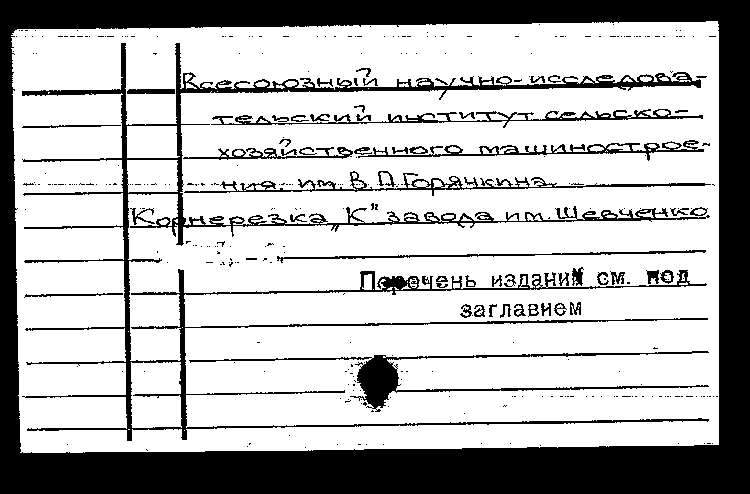 Всесоюзный научно-исследова-
тельский институт сельско-
хозяйственного машинострое-
ния им. В.П.Горячкина.
Корнерезка „К" завода им. Шевченко.
Перечень изданий см. под
заглавием